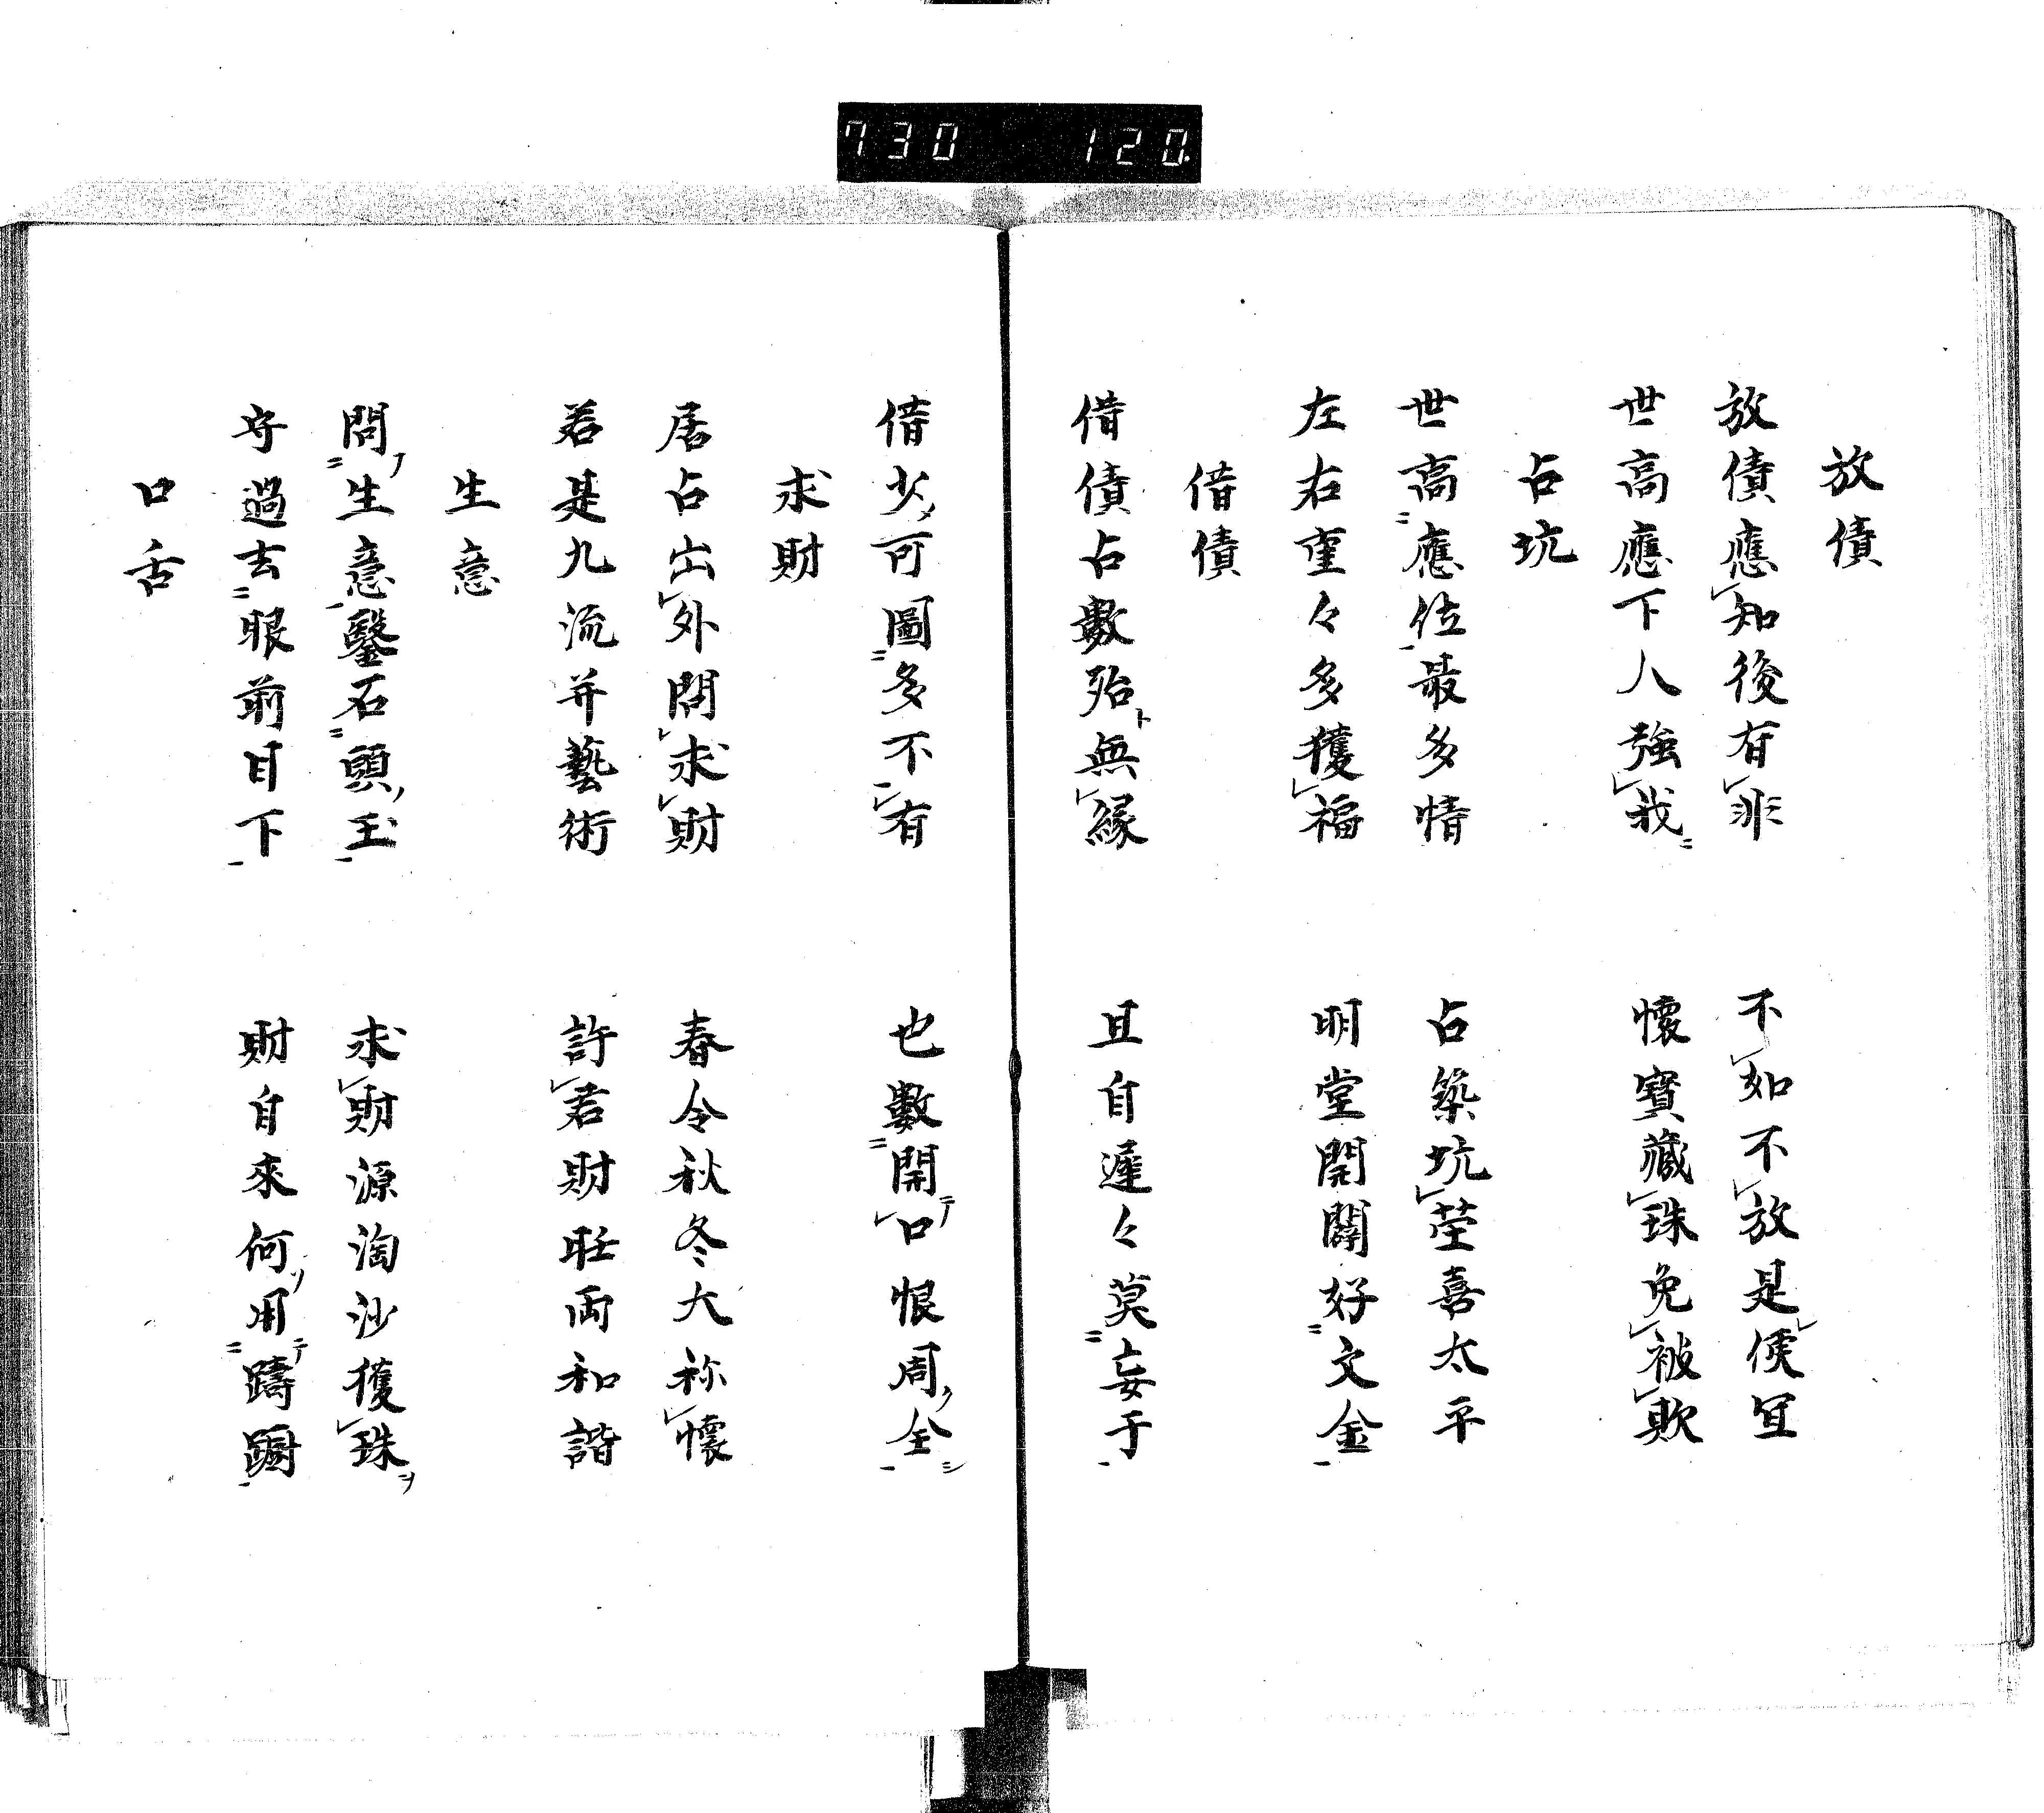 730 120
放債
放債應知後有非 不如不放是便宜
世高應下人強我 懷寶藏珠免被欺
占坑
世高應位最多情 占築坑塋喜太平
左右重々多獲福 明堂開闊好文金
借債
借債占數殆無緣 且自遲々莫妄于
借少可圖多不有 也數開口恨周全
求財
居占出外問求財 春令秋冬大称懷
若是九流并藝術 許君財旺兩和諧
生意
問生意鑿石頭玉 求財源淘沙獲珠
守過去眼前目下 財自來何用躊躕
口舌